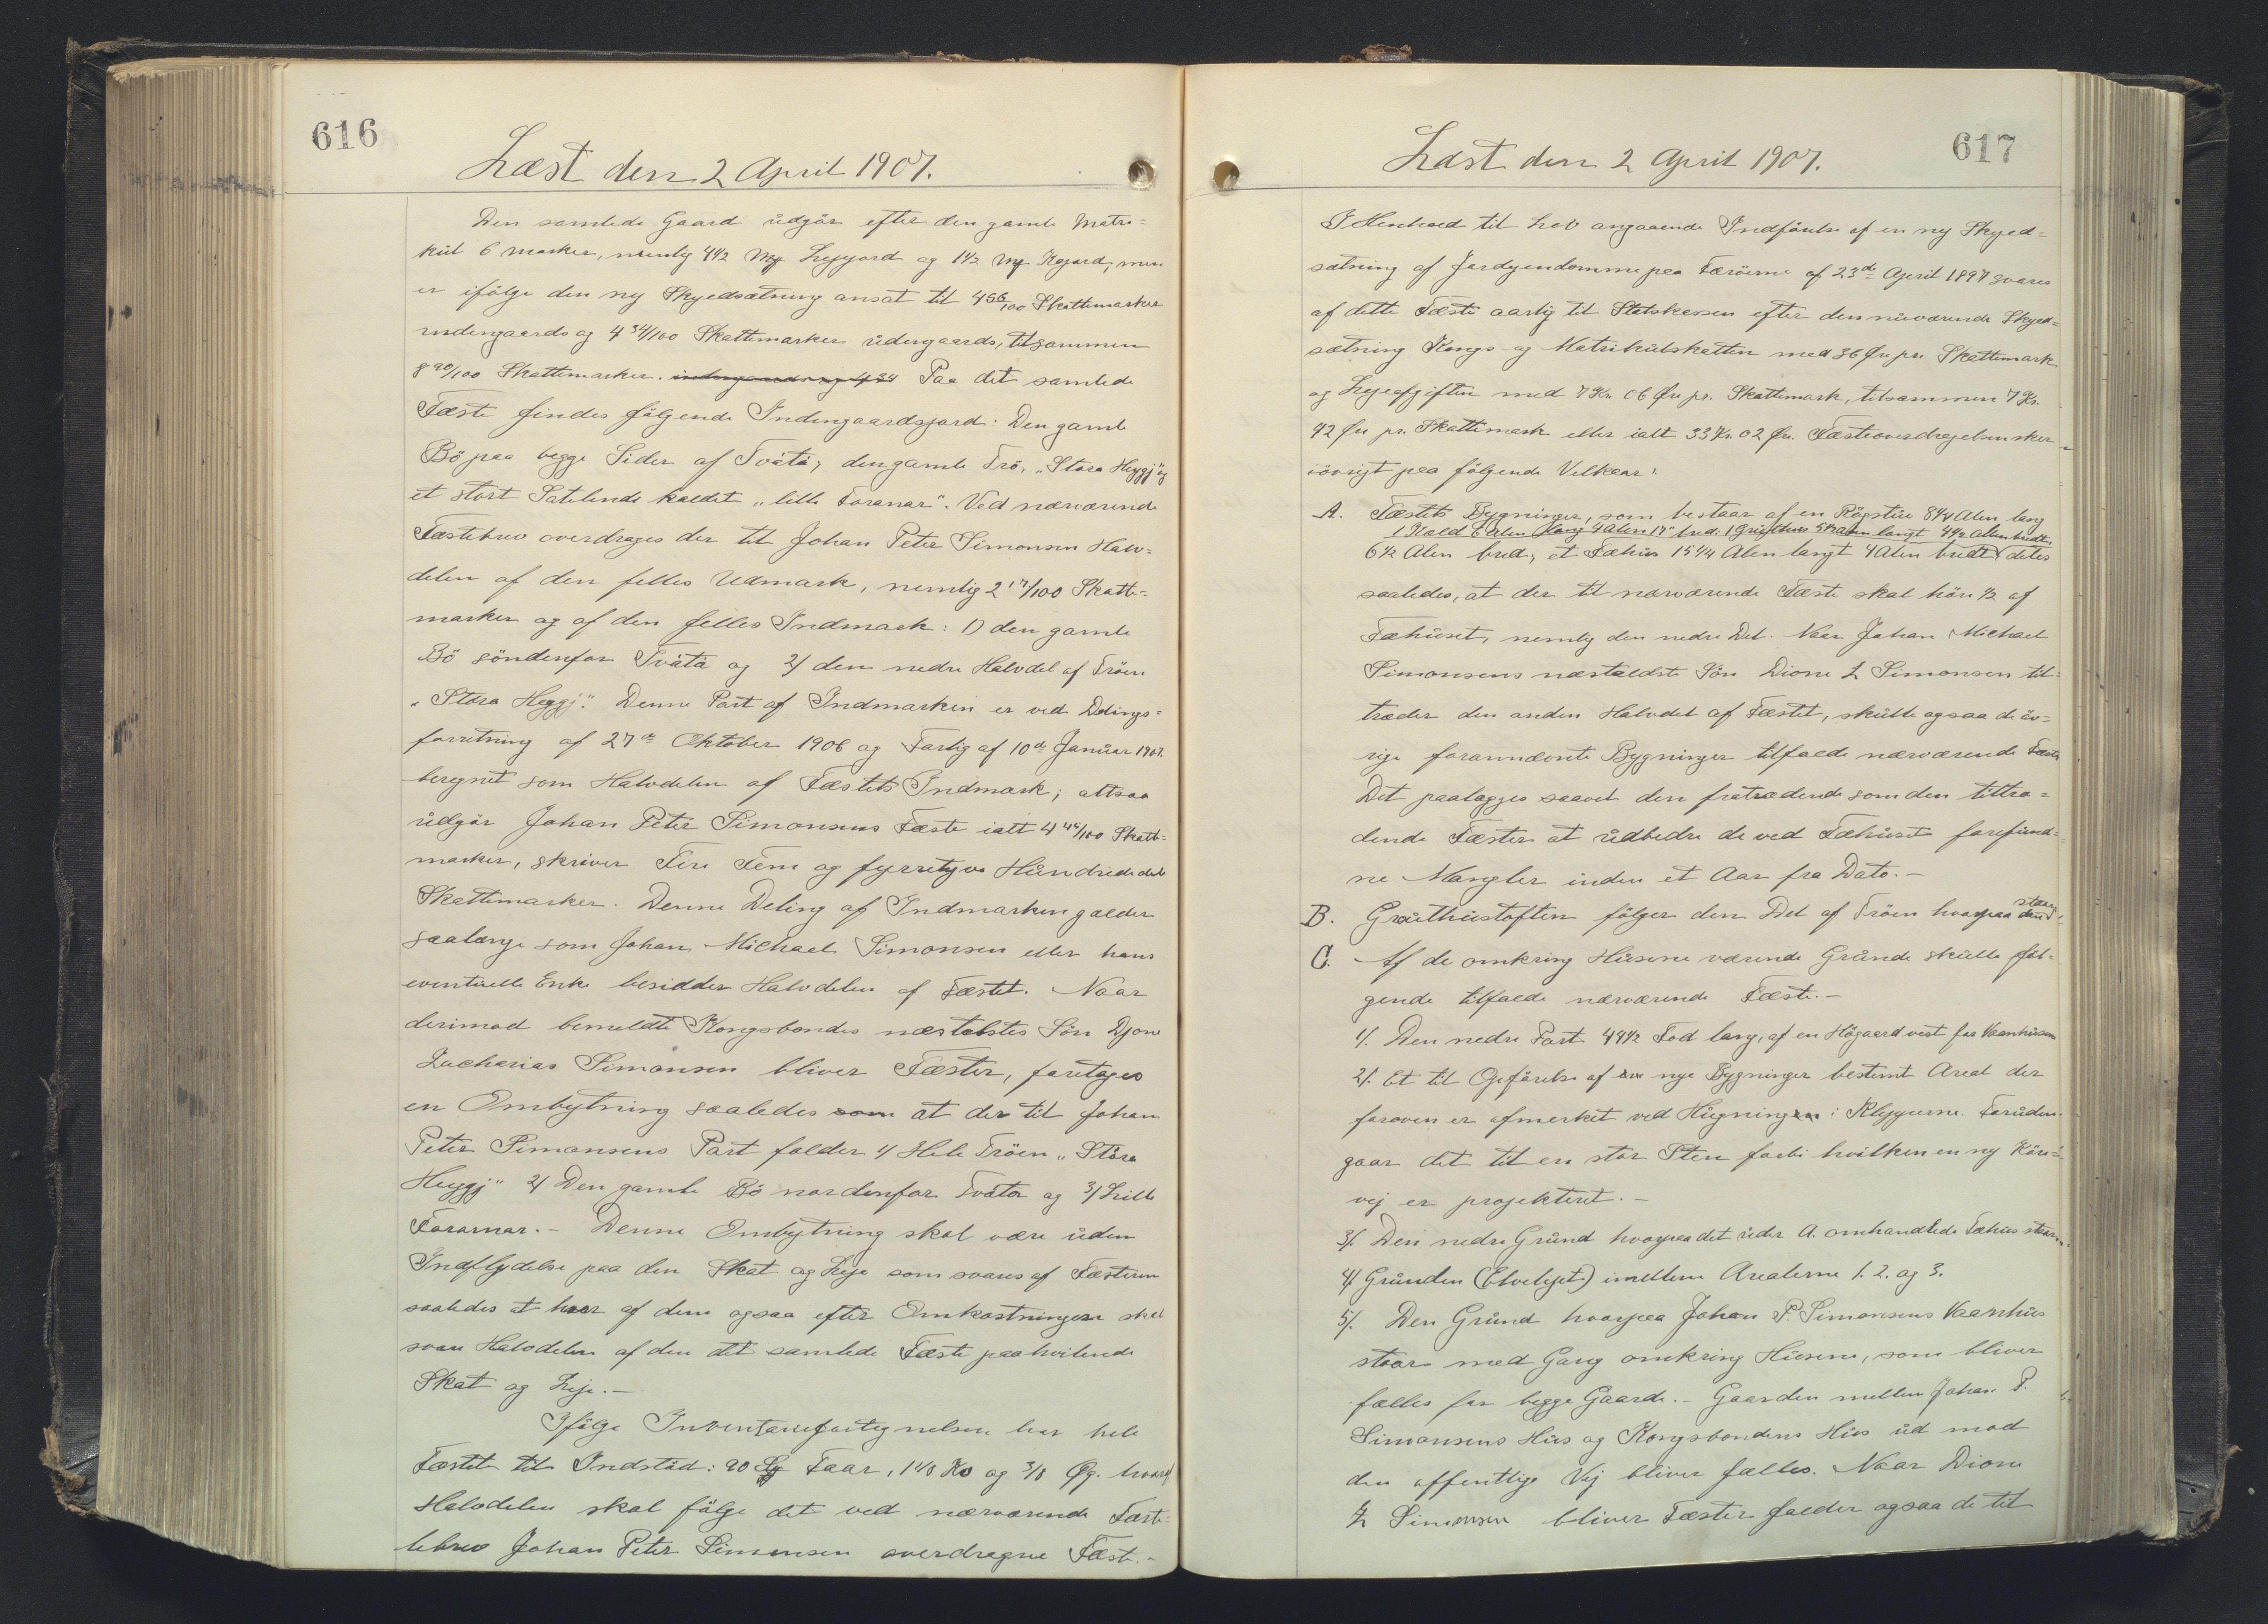 616
Læst den 2 April 1907.
Den samlede Gaard udgør efter den gamle Matri=
kul 6 Marker, nemlig 4 1/2 Mk Lejejord og 1 1/2 Mk Kgjord, men
er ifölge den ny Skyldsætning ansat til 4 56/100 Skattemarker
indengaards og 4 34/100 Skattemarker udengaards, tilsammen
8 90/100 Skattemarker. indengaards og 4 34 Paa det samlede
Fæste findes fölgende Indengaardsjord: Den gamle
Bö paa begge Sider af Tvátá, den gamle Trö, "Stóra Heygg" og
et stort Satelende kaldet "lille Foranar". Ved nærværende
Fæstebrev overdrages der til Johan Peter Simonsen Halv=
delen af den fælles Udmark, nemlig 2 17/100 Skatte=
marker og af den fælles Indmark: 1) den gamle
Bö söndenfor Tvátá og 2/ den nedre Halvdel af Tröen
"Stóra Heggj". Denne Part af Indmarken er ved Delings=
forretning af 27de Oktober 1906 og Forlig af 10de Januar 1907.
beregnet som Halvdelen af Fæstets Indmark; altsaa
udgör Johan Peter Simonsens Fæste ialt 4 45/100 Skatte=
marker, skriver Fire Fem og fyrretyve Hundrededele
Skattemarker. Denne Deling af Indmarken gælder
saalænge som Johan Michael Simonsen eller hans
eventuelle Enke besidder Halvdelen af Fæstet. Naar
derimod bemeldte Kongsbondes næstældstes Sön Djone
Zacharias Simonsen bliver Fæster, foretages
en Ombytning saaledes som at der til Johan
Peter Simonsens Part falder 1/ Hele Tröen "Stóra
Heyggj" 2/ Den gamle Bö nordenfor Tváta og 3/ Lille
Foranar. - Denne Ombytning skal være uden
Indflydelse paa den Skat og Leje som svares af Fæsterne
saaledes at hver af dem ogsaa efter Omkostningen skal
svare Halvdelen af den det samlede Fæste paahvilende
Skat og Leje. -
Ifölge Inventariefortegnelsen har hele
Fæstet til Indstöd: 90 Faar, 1 1/8 Ko og 3/8 Øg. hvoraf
Halvdelen skal fölge det ved nærværende Fæste=
lebrev Johan Peter Simonsen overdragne Fæste. -
617
Læst den 2 April 1907.
I Henhold til Lov angaaende Indförelse af en ny Skyld=
sætning af Jordejendomme paa Færöerne af 23de April 1897 svares
af dette Fæste aarlig til Statskassen efter den nuværende Skyld=
sætning Kongs- og Matrikulskatten med 36 Øre pr. Skattemark
og Lejeafgiften med 7 Kr. 06 Øre pr. Skattemark, tilsammen 7 Kr.
42 Øre pr. Skattemark eller ialt 33 Kr. 02 Øre. Fæsteoverdragelsen sker
iövrigt paa fölgende Vilkaar:
A. Fæstets Bygninger, som bestaar af en Rögstue 8 1/4 Alen lang
1 Hjald 6 Alen lang 4 Alen 17" bred; 1 Gruthus 5 1/2 Alen langt 4 1/2 Alen bredt
6 1/2 Alen bred; et Fæhus 15 1/4 Alen langt 4 Alen bredt deles
saaledes, at der til nærværende Fæste skal höre 1/2 af
Fæhuset, nemlig den nedre Del. Naar Johan Michael
Simonsens næstældste Sön Dione Z Simonsen til=
træder den anden Halvdel af Fæstet, skulle ogsaa de öv=
rige forannævnte Bygninger tilfalde nærværende Fæste
Det paalægges saavel den fratrædende som den tiltræ=
dende Fæster at udbedre de ved Fæhuset forefund=
ne Mangler inden et Aar fra Dato. -
B. Gruthustoften fölger den Del af Tröen hvorpaa den staar.
C. Af de omkring Husene værende Grunde skulle föl=
gende tilfalde nærværende Fæste. -
1/. Den nedre Part 44 1/2 Fod lang, af en Högaard vest for Vaanhusene
2/. Et til Opförelse af nye Bygninger bestemt Areal der
foroven er afmerket ved Hugningen i Klipperne. Foruden
gaar det til en stor Sten forbi hvilken en ny Köre=
vej er projekteret. -
3/. Den nedre Grund hvorpaa det under A. omhandlede Fæhus staar.
4/ Grunden (Elvelejet) imellem Arealerne 1. 2. og 3.
5/. Den Grund hvorpaa Johan P. Simonsens Vaanhus
staar med Gang omkring Husene, som bliver
fælles for begge Gaarde. - Gaarden mellem Johan P.
Simonsens Hus og Kongsbondens Hus ud mod
den offentlige Vej bliver fælles. Naar Dione
Z Simonsen bliver Fæster falder ogsaa de til